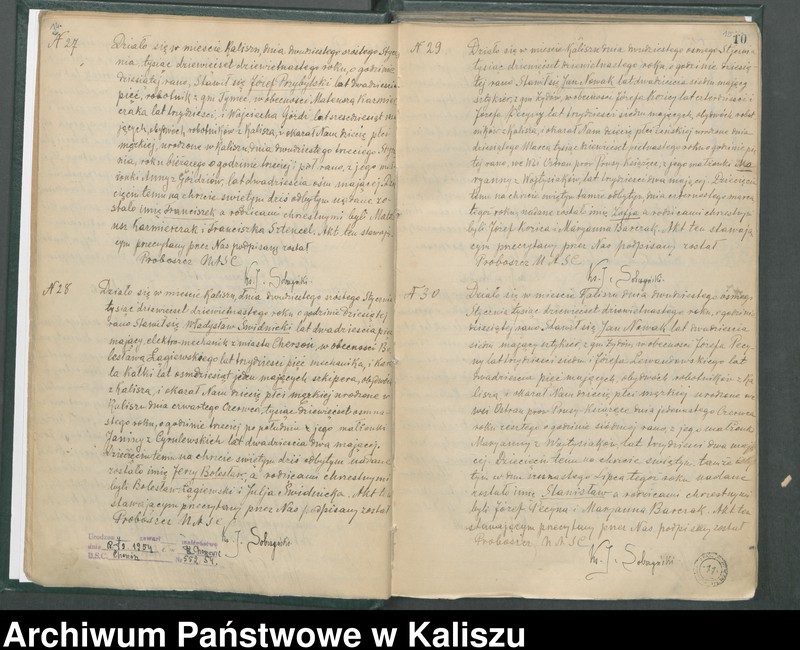 N 27
Działo się w mieście Kaliszu, dnia dwudziestego szóstego Stycz-
nia tysiąc dziewięćset dziewiętnastego roku, o godzinie
dziesiątej rano, Stawił się Józef Przybylski lat dwadzieścia
pięć, robotnik z gm. Tyniec, w obecności Mateusza Karmier-
czaka lat trzydzieści, i Wojciecha Górdi lat sześćdziesiąt ma-
jących, obydwóch robotników z Kalisza, i okazał Nam dziecię płci
męzkiej, urodzone w Kaliszu dnia dwudziestego trzeciego Stycz-
nia, roku bieżącego o godzinie trzeciej i pół rano, z jego mał-
żonki Anny z Góździów, lat dwadzieścia osm mającej. Dzie-
cięciu temu na chrzcie świętym dziś odbytym nadane zo-
stało imię Franciszek a rodzicami chrzestnymi byli Mate-
usz Karmierczak i Franciszka Sztencel. Akt ten stawają-
cym przeczytany przez Nas podpisany został
Proboszcz U.A.S.C.
Ks. J. Sobczyński
N 28
Działo się w mieście Kaliszu, dnia dwudziestego szóstego Stycznia
tysiąc dziewięćset dziewiętnastego roku o godzinie dziesiątej
rano Stawił się Władysław Świdnicki lat dwadzieścia pięć
mający, elektro-mechanik z miasta Cherson, w obecności Bo-
lesława Łagiewskiego lat trzydzieści pięć mechanika, i Karo-
la Kałki lat osmdziesiąt jeden mających szkipera, obydwóch
z Kalisza, i okazał Nam dziecię płci męzkiej urodzone w
Kaliszu dnia czwartego Czerwca, tysiąc dziewięćset osmna-
stego roku, o godzinie trzeciej po południu z jego małżonki
Janiny z Cyrulewskich lat dwadzieścia dwa mającej.
Dziecięciu temu na chrzcie świętym dziś odbytym nadane
zostało imię Jerzy Bolesław, a rodzicami chrzestnymi
byli Bolesław Łagiewski i Julja Świdnicka. Akt ten
stawającym przeczytany przez Nas podpisany został
Proboszcz U.A.S.C.
Ks. J. Sobczyński
10
N 29
Działo się w mieście Kaliszu, dnia dwudziestego osmego Stycznia
tysiąc dziewięćset dziewiętnastego roku, o godzinie dziesią-
tej rano Stawił się Jan Nowak lat dwadzieścia siedm mający
sztykier, z gm. Żydów, w obecności Józefa Kozicy lat czterdzieści i
Józefa Pecyny lat trzydzieści siedm mających, obydwóch robot-
ników z Kalisza, i okazał Nam dziecię płci żeńskiej urodzone dnia
dwudziestego Marca tysiąc dziewięćset piętnastego roku o godzinie pią-
tej rano, we Wsi Ostrów pow. Smug. Książęce z jego małżonki Ma-
ryanny z Wojtysiaków, lat trzydzieści dwa mającej. Dziecięciu
temu na chrzcie świętym tamże odbytym dnia czternastego marca
tegoż roku, nadane zostało imię Zofja a rodzicami chrzestnymi
byli Józef Kozica i Maryanna Barczak. Akt ten stawają-
cym przeczytany przez Nas podpisany został
Proboszcz U.A.S.C.
Ks. J. Sobczyński
N 30
Działo się w mieście Kaliszu dnia dwudziestego osmego
Stycznia tysiąc dziewięćset dziewiętnastego roku, o godzinie
dziesiątej rano Stawił się Jan Nowak lat dwadzieścia
siedm mający sztykier, z gm. Żydów w obecności Józefa Pecy-
ny lat trzydzieści siedm i Józefa Lewandowskiego lat
dwadzieścia pięć mających, obydwóch robotników z Ka-
lisza, i okazał Nam dziecię płci męzkiej urodzone we
wsi Ostrów pow. Smug. Książęce dnia jedenastego Czerwca
roku zeszłego o godzinie siódmej rano z jego małżonki
Maryanny z Wojtysiaków, lat trzydzieści dwa mają-
cej. Dziecięciu temu na chrzcie świętym tamże odby-
tym w dniu szesnastego Lipca tegoż roku nadane
zostało imię Stanisław a rodzicami chrzestnymi
byli Józef Pecyna i Maryanna Barczak. Akt ten
stawającym przeczytany przez Nas podpisany został
Proboszcz U.A.S.C.
Ks. J. Sobczyński
Archiwum Państwowe w Kaliszu